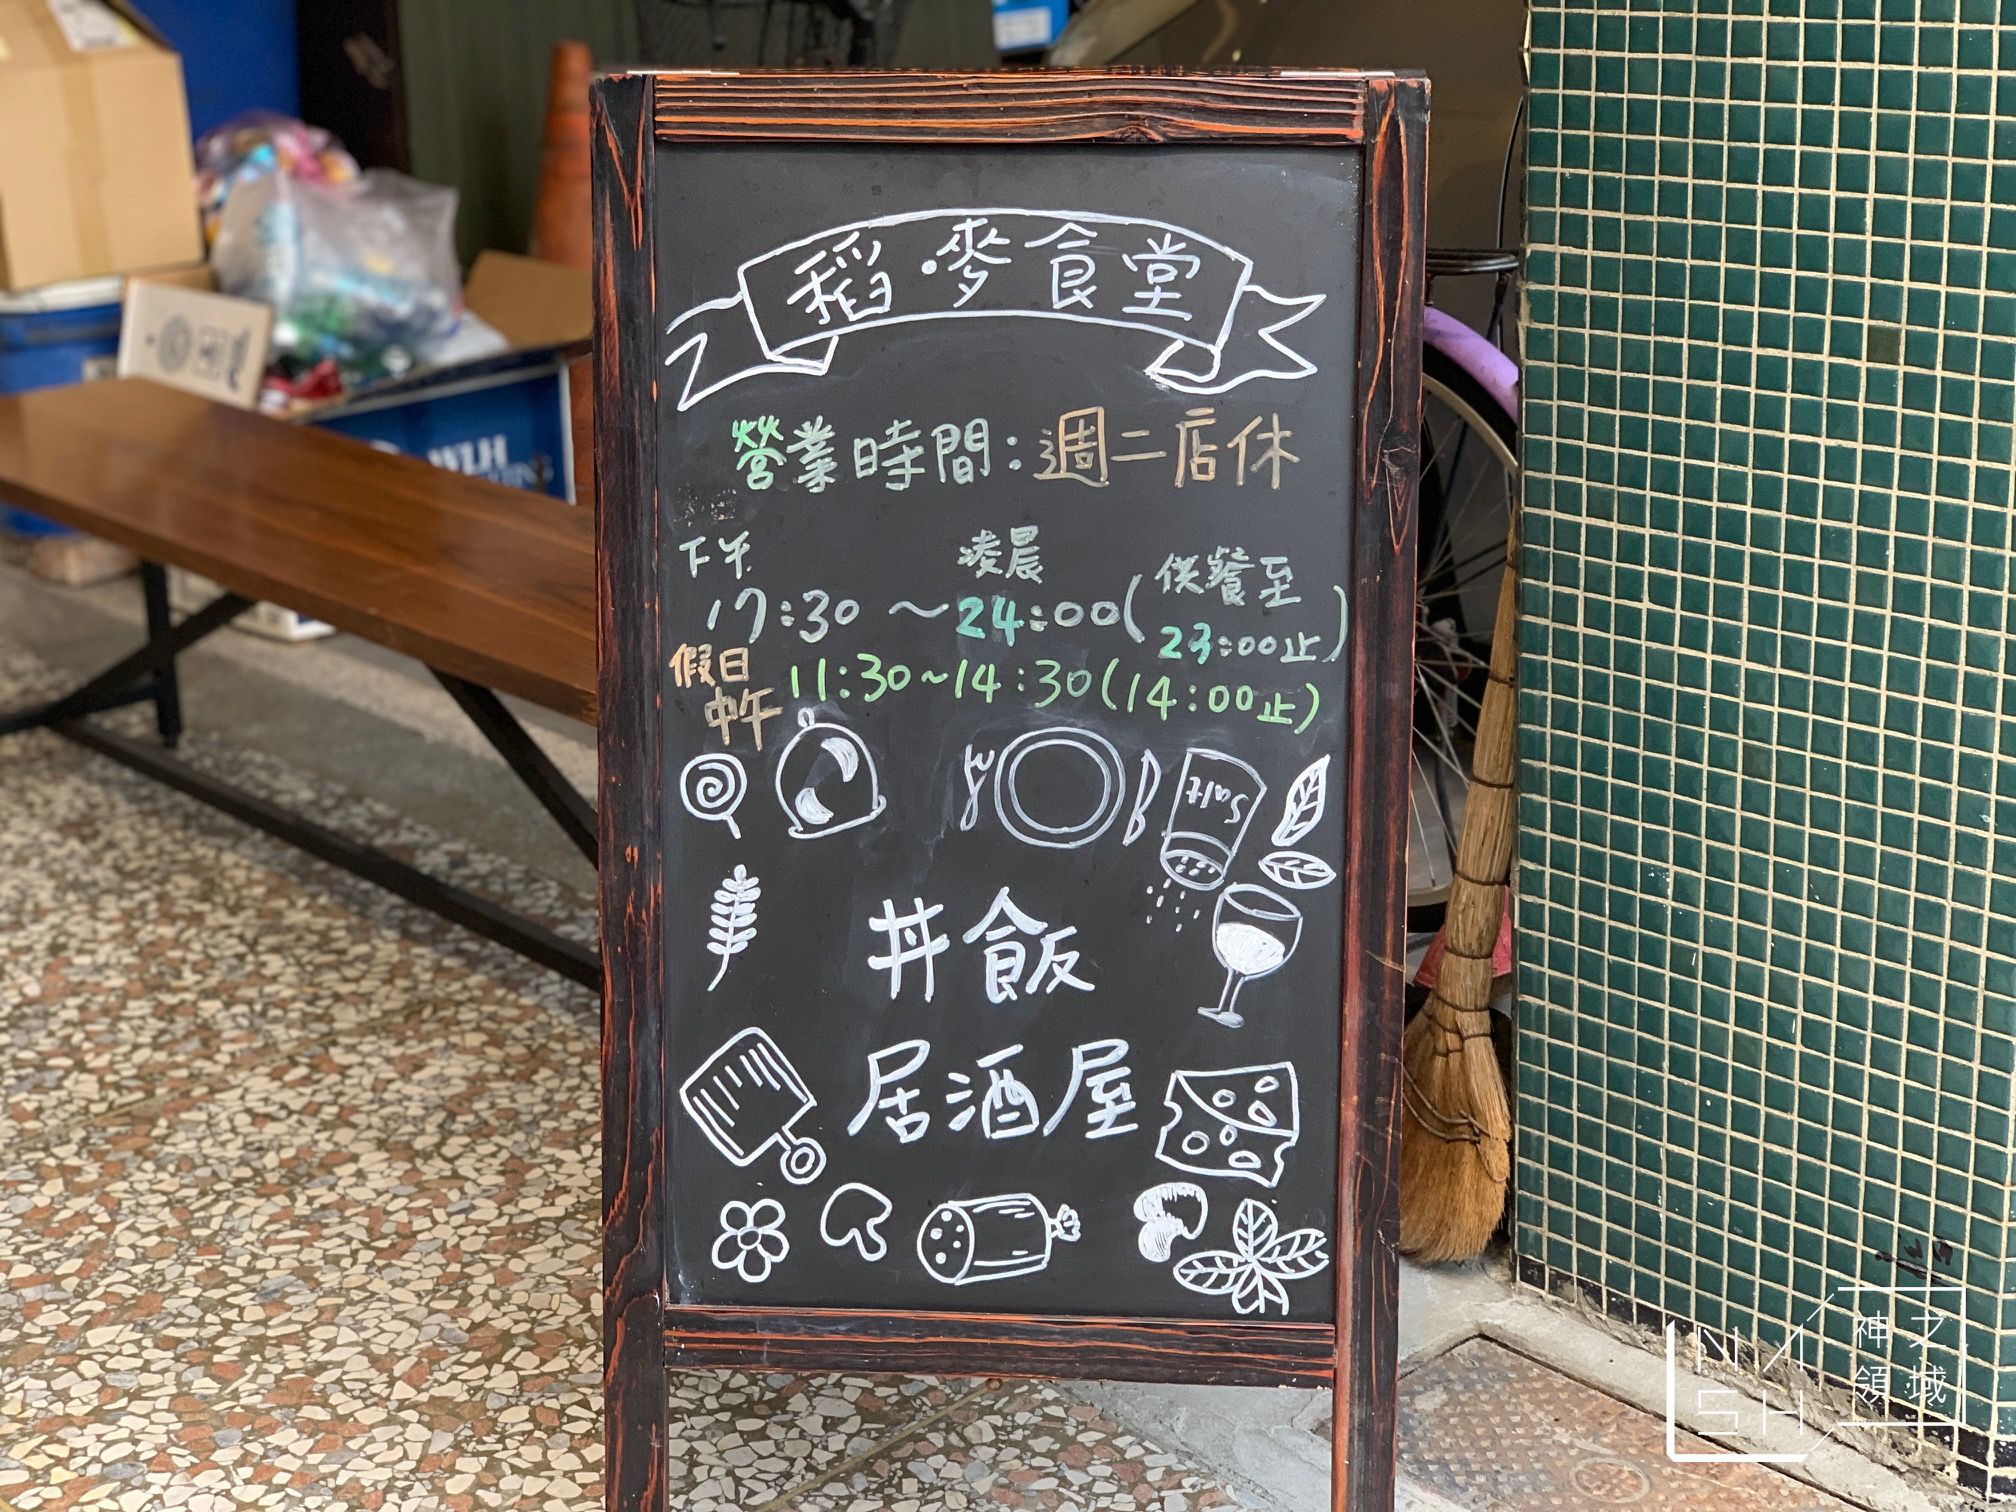 稻·麥食堂
營業時間:週二店休
下午 凌晨
17:30 ~24:00(供餐至23:00止)
假日中午 11:30~14:30(14:00止)
Salt
丼飯
居酒屋
WLH
NASH 神之領域